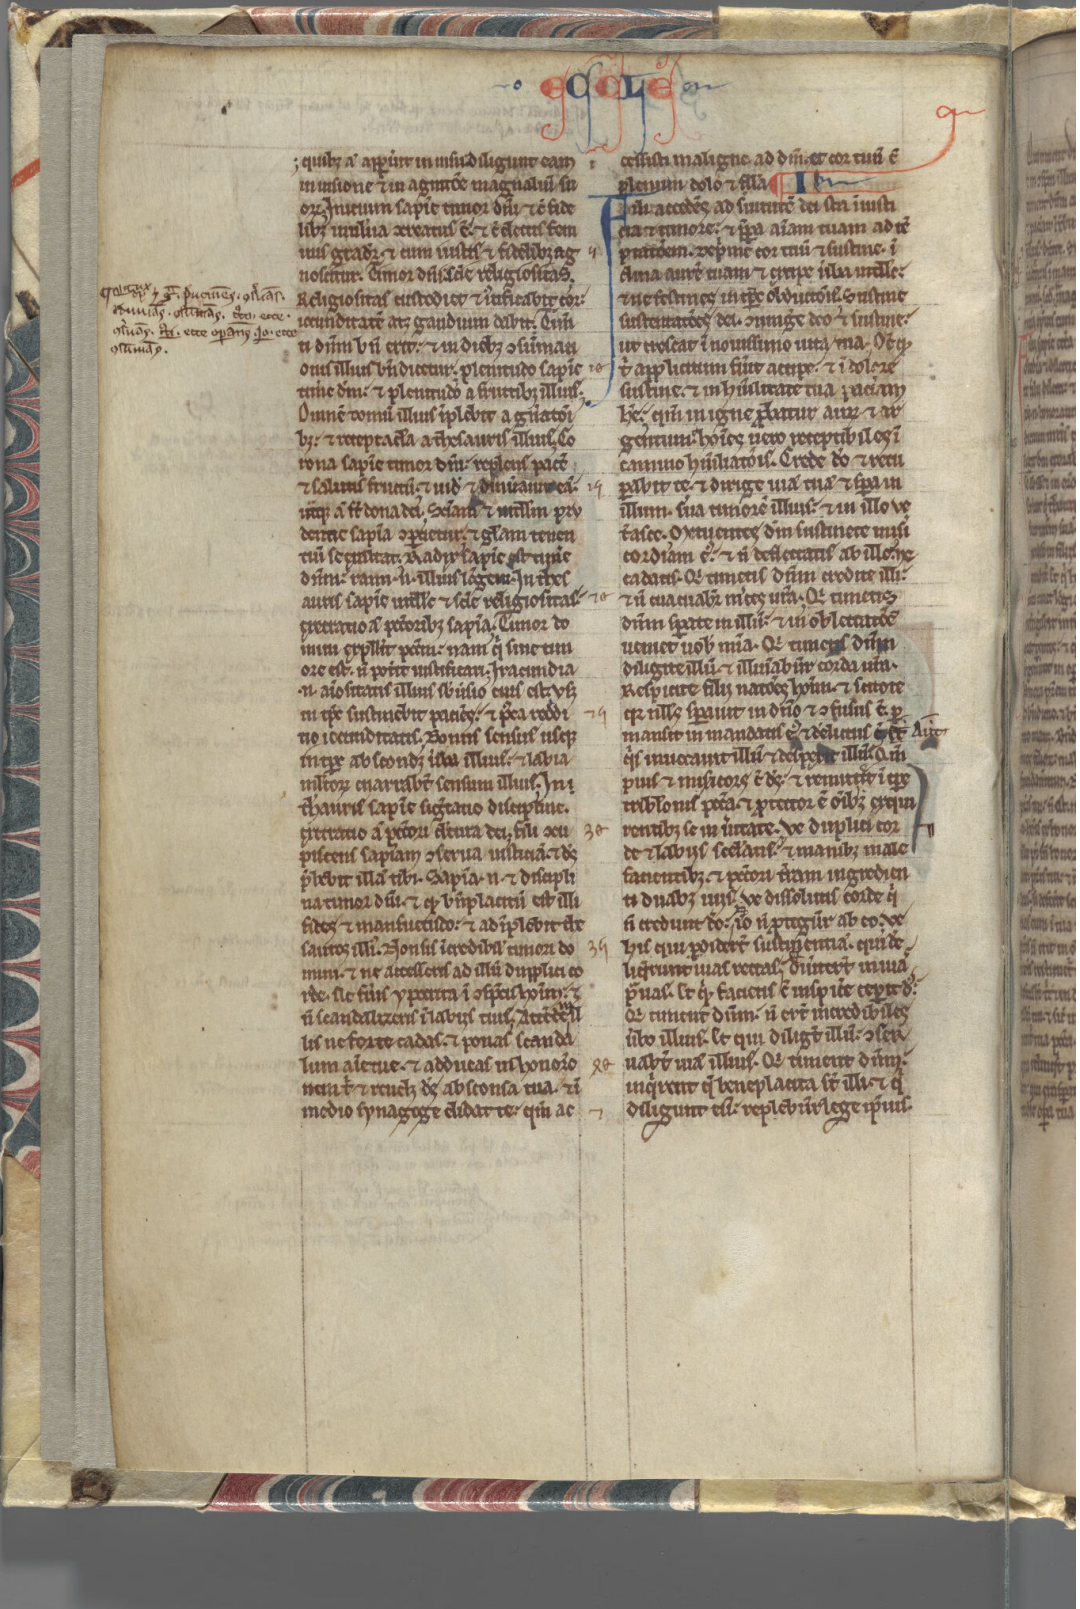 ECCLE
quibꝫ ā apparuit in uisu diligunt eam
in uisione ⁊ in agnitōe magnaliū su
oꝝ. Initium sapīe timor dn̄i ⁊ cū fide
libꝫ in uulua ꝯcreatus ē. ⁊ cū electis fem
inis gradit᷑ ⁊ cum iustis ⁊ fidelibꝫ ag
noscitur. Timor dn̄i scīe religiositas.
Religiositas custodiet ⁊ iustificabit cor.
iocunditatē atqꝫ gaudium dabit. Tim̄
ti dn̄m bn̄ erit. ⁊ in diebꝫ ꝯsūmati
onis illius bn̄dicetur. plenitudo sapīe
time dn̄m. ⁊ plenitudo a fructibꝫ illius.
Omnē domū illius īplebit a gn̄atōi
bꝫ. ⁊ receptacl̄a a thesauris illius. Co
rona sapīe timor dn̄i. replens pacē
⁊ salutis fructū. ⁊ uidit ⁊ dinūauit eā.
utraqꝫ ā st̄ dona dei. Scīam ⁊ intell̄m pru
dentie sapīa ꝯpertietur. ⁊ gl̄am tenen
tiū se exaltat. Radix sapīe est time
dn̄m. rami .n. illius lōgeui. In thes
auris sapīe intell̄s ⁊ scīe religiositas.
execratio ā pctōribꝫ sapīa. Timor do
mini expellit pctm̄. nam q̄ sine tim
ore est. n̄ poterit iustificari. Iracundia
.n. aīositatis illius sb̄uersio eius est. Usqꝫ
in tp̄s sustinebit paciēs. ⁊ postea reddi
tio iocunditatis. Bonus sensus usqꝫ
in tp̄s abscondet u̾ba illius. ⁊ labia
multoꝝ enarrabt̄ sensum illius. In
thauris sapīe sig̅catio discipline.
execratio ā pctōri cultura dei. fili ꝯcu
piscens sapīam ꝯserua iusticiā. ⁊ dꝫ
p̄bebit illā tibi. Sapīa .n. ⁊ discipli
na timor dn̄i. ⁊ qd̄ bn̄placitū est illi
fides ⁊ mansuetudo. ⁊ adīplebit the
sauros illi. Non sis īcredibil̄ timori do
mini. ⁊ ne accesseris ad illū duplici co
rde. Ne fueris ypocrita ī ꝯspc̄u hoīm. ⁊
n̄ scandalizeris ī labiis tuis. Attēde ī il
lis ne forte cadas. ⁊ ponas scanda
lum aīe tue. ⁊ adducas inhonora
tionem t̄. ⁊ reuelet dꝫ absconsa tua. ⁊ ī
medio synagoge elidat te. qm̄ ac
cessisti maligne ad dn̄m. et cor tuū ē
plenum dolo ⁊ fallā II
Fili accedēs ad ſ̄uitutē dei sta ī iusti
cia ⁊ timore. ⁊ p̄para aīam tuam ad tē
ptatōem. Dep̄me cor tuū ⁊ sustine. ī
clina aurē tuam ⁊ excipe u̾ba intell̄s.
⁊ ne festines in tp̄e obductōis. Sustine
sustentatōes dei. ꝯiunge deo ⁊ sustine.
ut crescat ī nouissimo uita tua. Oē qd̄
t̄ applicitum fūit accipe. ⁊ ī dolore
sustine. ⁊ in hūilitate tua paciam
hē. qm̄ in igne probatur auꝝ ⁊ ar
gentum. hoīes uero receptibiles ī
camino hūiliatōis. Crede dō ⁊ recu
perabit te. ⁊ dirige uiā tuā ⁊ spera in
illum. s̄ua timorē illius. ⁊ in illo ve
t̄asce. Metuentes dn̄m sustinete mis̄i
cordiam eꝰ. ⁊ n̄ deflectatis ab illo ne
cadatis. Qͥ timetis dn̄m credite illi.
⁊ n̄ euacuabit᷑ m̾ces ur̄a. Qͥ timetis
dn̄m sperate in illū. ⁊ in oblectatōe
ueniet uob̄ mīa. Qͥ timetis dn̄m
diligite illū. ⁊ illuīabūt᷑ corda ur̄a.
Respicite filii natōes hoīm. ⁊ scitote
qꝛ nullꝰ sperauit in dn̄o ⁊ ꝯfusus ē. per
mansit in mandatis eꝰ ⁊ derelictus ē. Aut
qͥs inuocauit illū ⁊ despexit illū. Qm̄
pius ⁊ misericors ē dꝫ. ⁊ remittet ī tp̄e
tribl̄onis pctā. ⁊ protector ē oībꝫ exqui
rentibꝫ se in ūitate. Ve duplici cor
de ⁊ labiis scelestis. ⁊ manibꝫ male
facientibꝫ. ⁊ pctōri t̄ram ingredien
ti duabꝫ uiis. Ve dissolutis corde qͥ
n̄ credunt dō. iō n̄ protegūt᷑ ab eo. Ve
his qui perdiderūt sustinentiā. qui de
liquerunt uias rectas. ⁊ diuerterūt in uias
prauas. Et qͥd facient cū inspicere ceperit dꝰ.
Qͥ timent dn̄m. n̄ erūt incredibiles
u̾bo illius. Et qui diligt̄ illū. ꝯser
uabūt uiā illius. Qͥ timent dn̄m.
inqͥrent q̄ beneplacita st̄ illi. ⁊ qͥ
diligunt eū. replebūt᷑ lege ip̄ius.